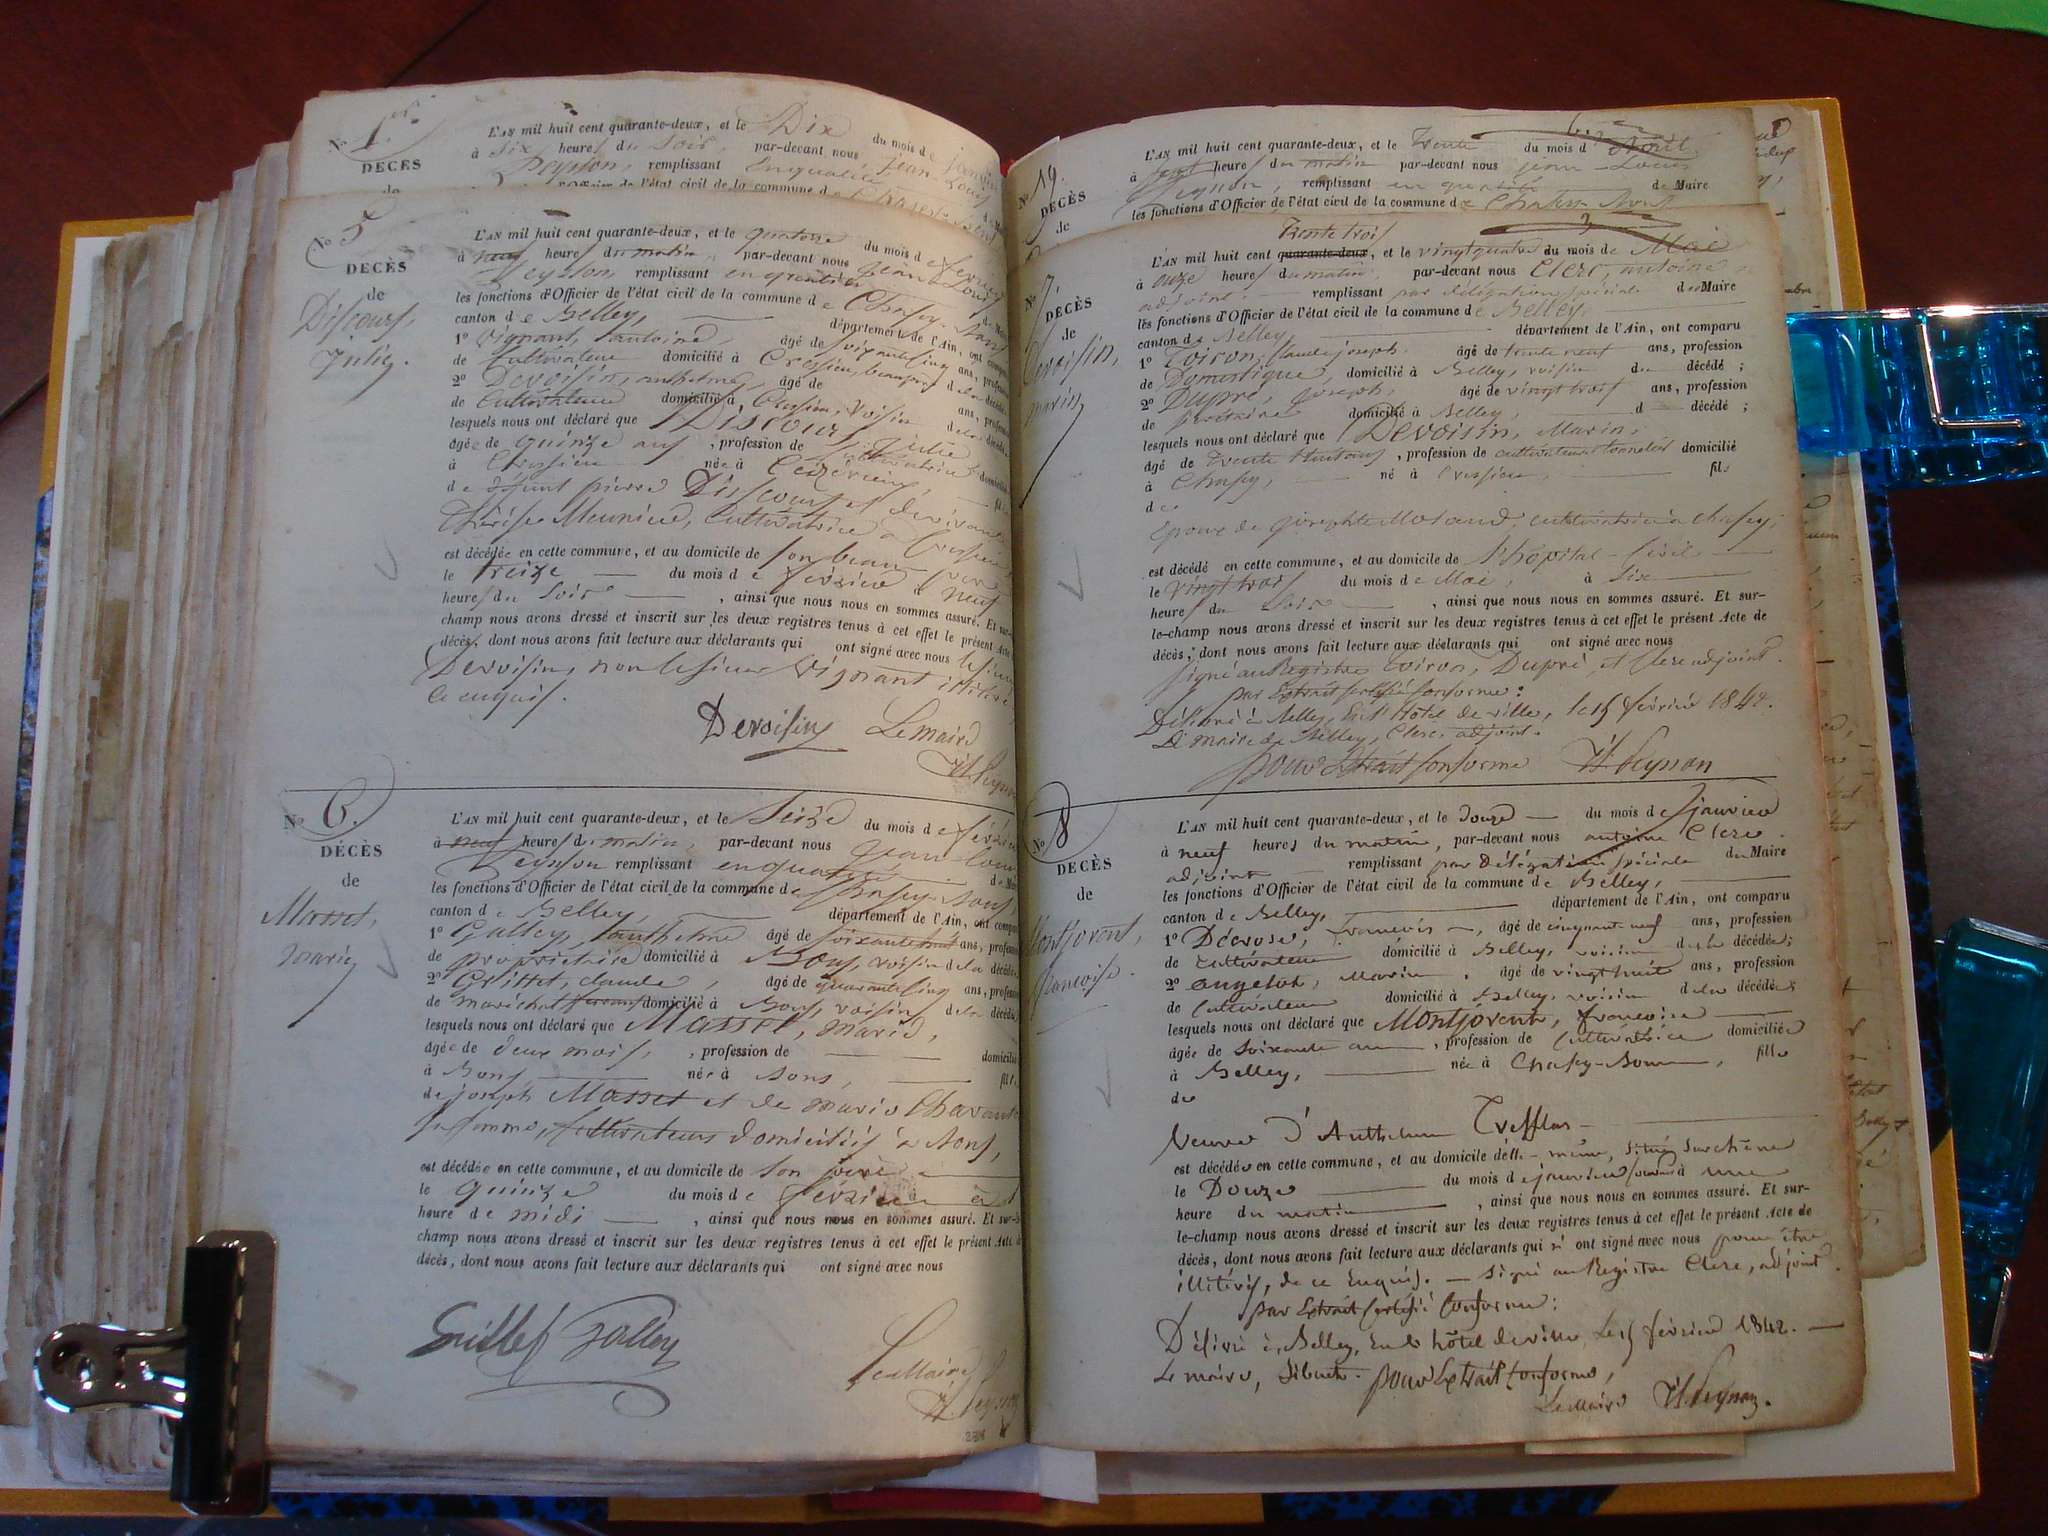 No 1er
DÉCÈS
de
L'AN mil huit cent quarante-deux, et le Dix du mois de
à Six heures du Soir, par-devant nous Jean Louis
Peysson, remplissant En qualité
officier de l'état civil de la commune d
No 5
DECÈS
de
Discours,
Julie.
L'AN mil huit cent quarante-deux, et le quatorze du mois de février
à neuf heures du matin, par-devant nous Jean Louis
Peysson, remplissant en qualité
les fonctions d'Officier de l'état civil de la commune de Chazey-Bons
canton de Belley, département de l'Ain, ont comparu
1o Vignant, antoine, âgé de soixante cinq ans, profession
de Cultivateur domicilié à Cressieu, beau père de la décédée
2o Devoisin, anthelme, âgé de ans, profession
de Cultivateur domicilié à Cressieu, voisin de la décédée
lesquels nous ont déclaré que Discours, Julie
âgée de quinze ans, profession de cultivatrice domiciliée
à Cressieu née à Ceizérieu, fille
de défunt pierre Discours et de vivante
thérèse Meunier, Cultivatrice à Cressieu
est décédée en cette commune, et au domicile de son beau père
le treize du mois de février à neuf
heures du Soir, ainsi que nous nous en sommes assuré. Et sur-
champ nous avons dressé et inscrit sur les deux registres tenus à cet effet le présent Acte
décès, dont nous avons fait lecture aux déclarants qui ont signé avec nous le sieur
Devoisin, non le sieur Vignant illitéré
ce enquis.
Devoisin Le maire
JL Peysson
No 6.
DÉCÈS
de
Masset,
marie
L'AN mil huit cent quarante-deux, et le Seize du mois de février
à neuf heures du matin, par-devant nous jean louis
Peysson remplissant en qualité de Maire
les fonctions d'Officier de l'état civil de la commune de Chazey-Bons,
canton de Belley, département de l'Ain, ont comparu
1o Galley, anthelme âgé de soixante huit ans, profession
de propriétaire domicilié à Bons, voisin de la décédée
2o Grillet, claude, âgé de quarante cinq ans, profession
de maréchal ferrant domicilié à Bons, voisin de la décédée
lesquels nous ont déclaré que Masset, marie,
âgée de deux mois, profession de domiciliée
à Bons née à Bons, fille
de joseph Masset et de marie Chavant
sa femme, cultivateurs domiciliés à Bons,
est décédée en cette commune, et au domicile de son père
le quinze du mois de février à
heure de midi, ainsi que nous nous en sommes assuré. Et sur-
champ nous avons dressé et inscrit sur les deux registres tenus à cet effet le présent Acte
décès, dont nous avons fait lecture aux déclarants qui ont signé avec nous
Grillet Galley
Le Maire
JL Peysson
No 19.
DÉCÈS
de
L'AN mil huit cent quarante-deux, et le Trente du mois d'Avril
à sept heures du matin par-devant nous jean-Louis
Peysson, remplissant en qualité de Maire
les fonctions d'Officier de l'état civil de la commune de Chazey-Bons
No 7.
DÉCÈS
de
Devoisin,
marin
Trente trois
L'AN mil huit cent quarante-deux, et le vingt quatre du mois de Mai
à onze heures du matin, par-devant nous Clerc, antoine
adjoint, remplissant par délégation spéciale de Maire
les fonctions d'Officier de l'état civil de la commune de Belley,
canton de Belley département de l'Ain, ont comparu
1o Toiron, Claude joseph, âgé de trente neuf ans, profession
de Domestique, domicilié à Belley, voisin du décédé;
2o Dupré, joseph, âgé de vingt trois ans, profession
de domicilié à Belley, d décédé;
lesquels nous ont déclaré que Devoisin, Marin,
âgé de trente huit ans, profession de cultivateur tonnelier domicilié
à Chazey, né à Cressieu, fils
de
Epoux de josephte Moland, cultivatrice à chazey,
est décédé en cette commune, et au domicile de l'hôpital-Civil
le vingt trois du mois de Mai, à Six
heures du Soir, ainsi que nous nous en sommes assuré. Et sur-
le-champ nous avons dressé et inscrit sur les deux registres tenus à cet effet le présent Acte de
décès, dont nous avons fait lecture aux déclarants qui ont signé avec nous
signé au Registre Toiron, Dupré, et Clerc adjoint.
par Extrait certifié Conforme:
Délivré à Belley, En l'Hôtel de ville, le 15 février 1842.
Le maire de Belley, Clerc, adjoint.
pour Extrait Conforme JL Peysson
No 8
DECÈS
de
Montjovent,
françoise.
L'AN mil huit cent quarante-deux, et le Douze du mois de janvier
à neuf heures du matin, par-devant nous antoine Clerc
adjoint remplissant par Délégation Spéciale du Maire
les fonctions d'Officier de l'état civil de la commune de Belley,
canton de Belley, département de l'Ain, ont comparu
1o Décrose, francois, âgé de cinquante neuf ans, profession
de cultivateur domicilié à Belley, voisin de la décédée;
2o angelot, Marin, âgé de vingt huit ans, profession
de Cultivateur domicilié à Belley, voisin de la décédée;
lesquels nous ont déclaré que Montjovent, françoise
âgée de Soixante ans, profession de Cultivatrice domiciliée
à Belley, née à Chazey-Bons, fille
de
Veuve d'Anthelme Trefflas
est décédée en cette commune, et au domicile d'elle-même, situé Sur chêne
le Douze du mois de janvier courant à une
heure du matin, ainsi que nous nous en sommes assuré. Et sur-
le-champ nous avons dressé et inscrit sur les deux registres tenus à cet effet le présent Acte de
décès, dont nous avons fait lecture aux déclarants qui n'ont signé avec nous pour être
illitérés, de ce Enquis. — Signé au Registre Clerc, adjoint.
par Extrait Certifié Conforme:
Délivré à Belley, En l'hôtel de ville, Le 15 février 1842.
Le maire, Sibuet. pour Extrait Conforme,
Le Maire JL Peysson.